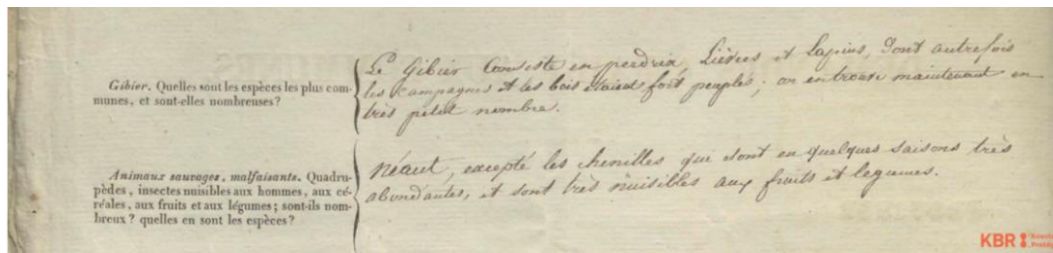 Gibier. Quelles sont les espèces les plus com-
munes, et sont-elles nombreuses?
Le Gibier Consiste en perdrix, Lièvres et Lapins, dont autrefois
les campagnes et les bois étaient fort peuplés; on en trouve maintenant en
très petit nombre.
Animaux sauvages, malfaisants. Quadru-
pèdes, insectes nuisibles aux hommes, aux cé-
réales, aux fruits et aux légumes; sont-ils nom-
breux? quelles en sont les espèces?
Néant, excepté les chenilles qui sont en quelques saisons très
abondantes, et sont très nuisibles aux fruits et legumes.
KBR